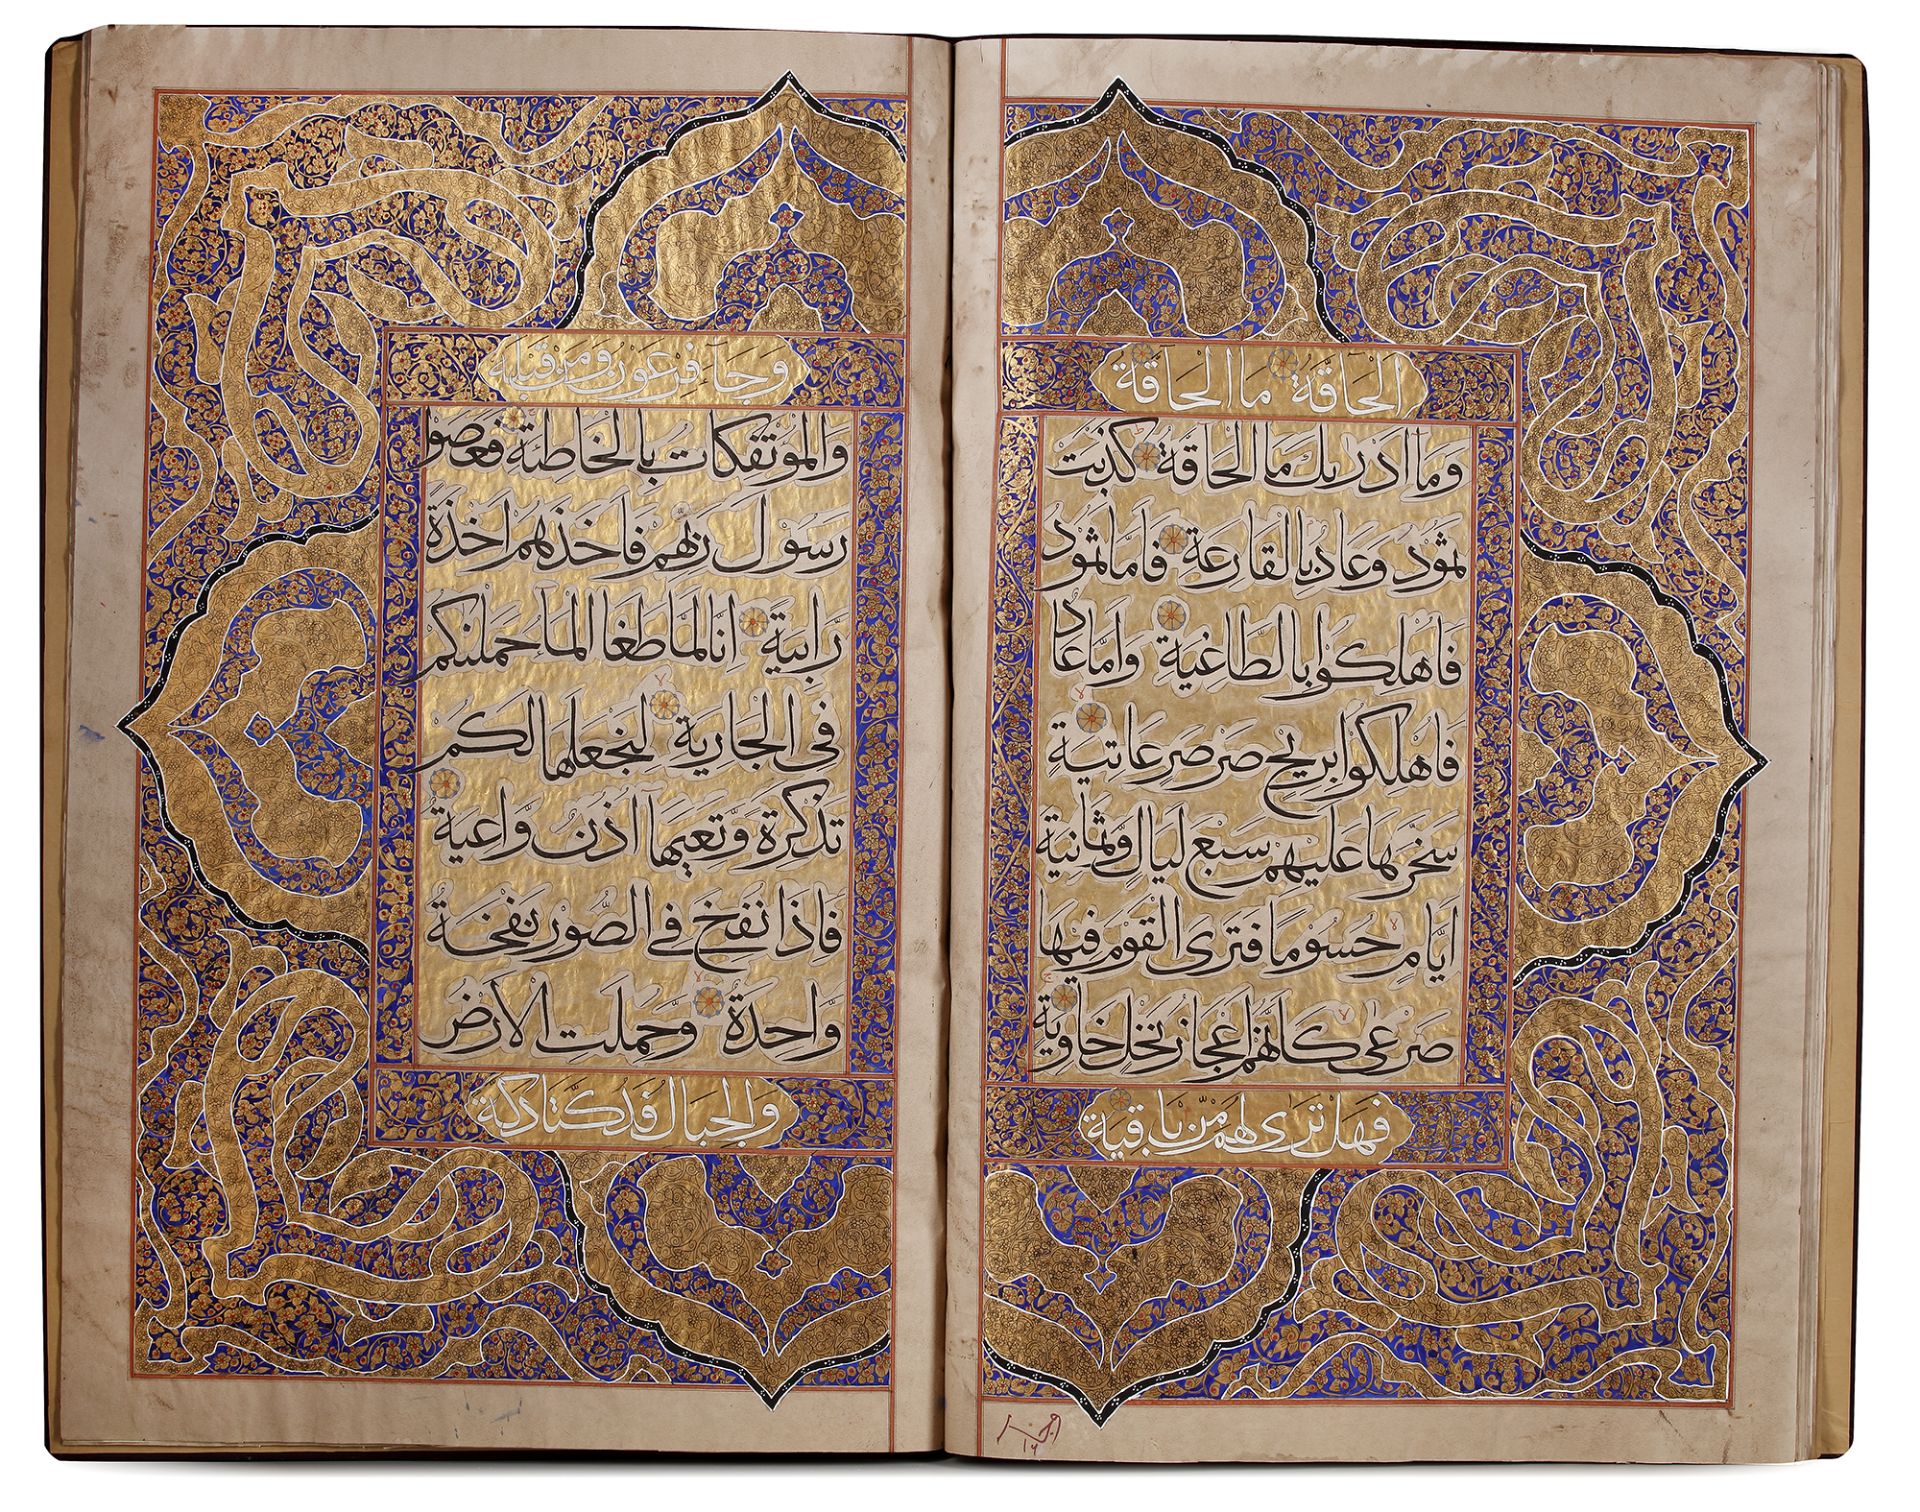 الحاقة ما الحاقة
وما ادريك ما الحاقة كذبت
ثمود وعاد بالقارعة فاما ثمود
فاهلكوا بالطاغية واما عاد
فاهلكوا بريح صرصر عاتية
سخرها عليهم سبع ليال وثمانية
ايام حسوما فترى القوم فيها
صرعى كانهم اعجاز نخل خاوية
فهل ترى لهم من باقية
وجآ فرعون ومن قبله
والمؤتفكات بالخاطئة فعصو
رسول ربهم فاخذهم اخذة
رابية انا لما طغا المآ حملنكم
في الجارية لنجعلها لكم
تذكرة وتعيها اذن واعية
فاذا نفخ في الصور نفخة
واحدة وحملت الارض
والجبال فدكتا دكة